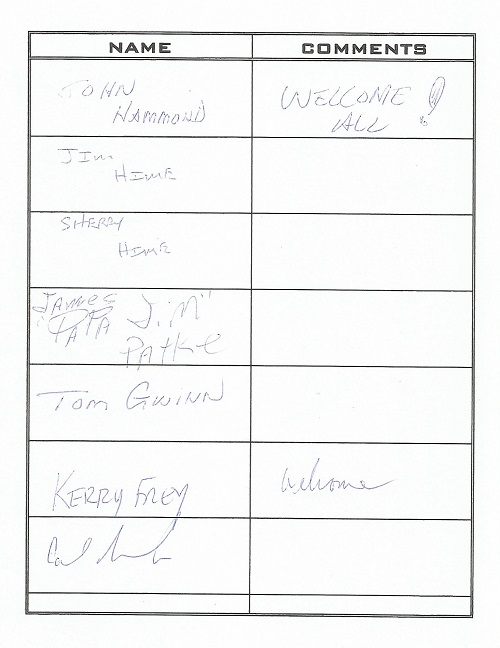 NAME COMMENTS
JOHN
HAMMOND
WELCOME !
ALL
JIM
HIME
SHERRY
HIME
JAMES
"PAPA JIM"
Tom GWINN
KERRY FREY
Welcome